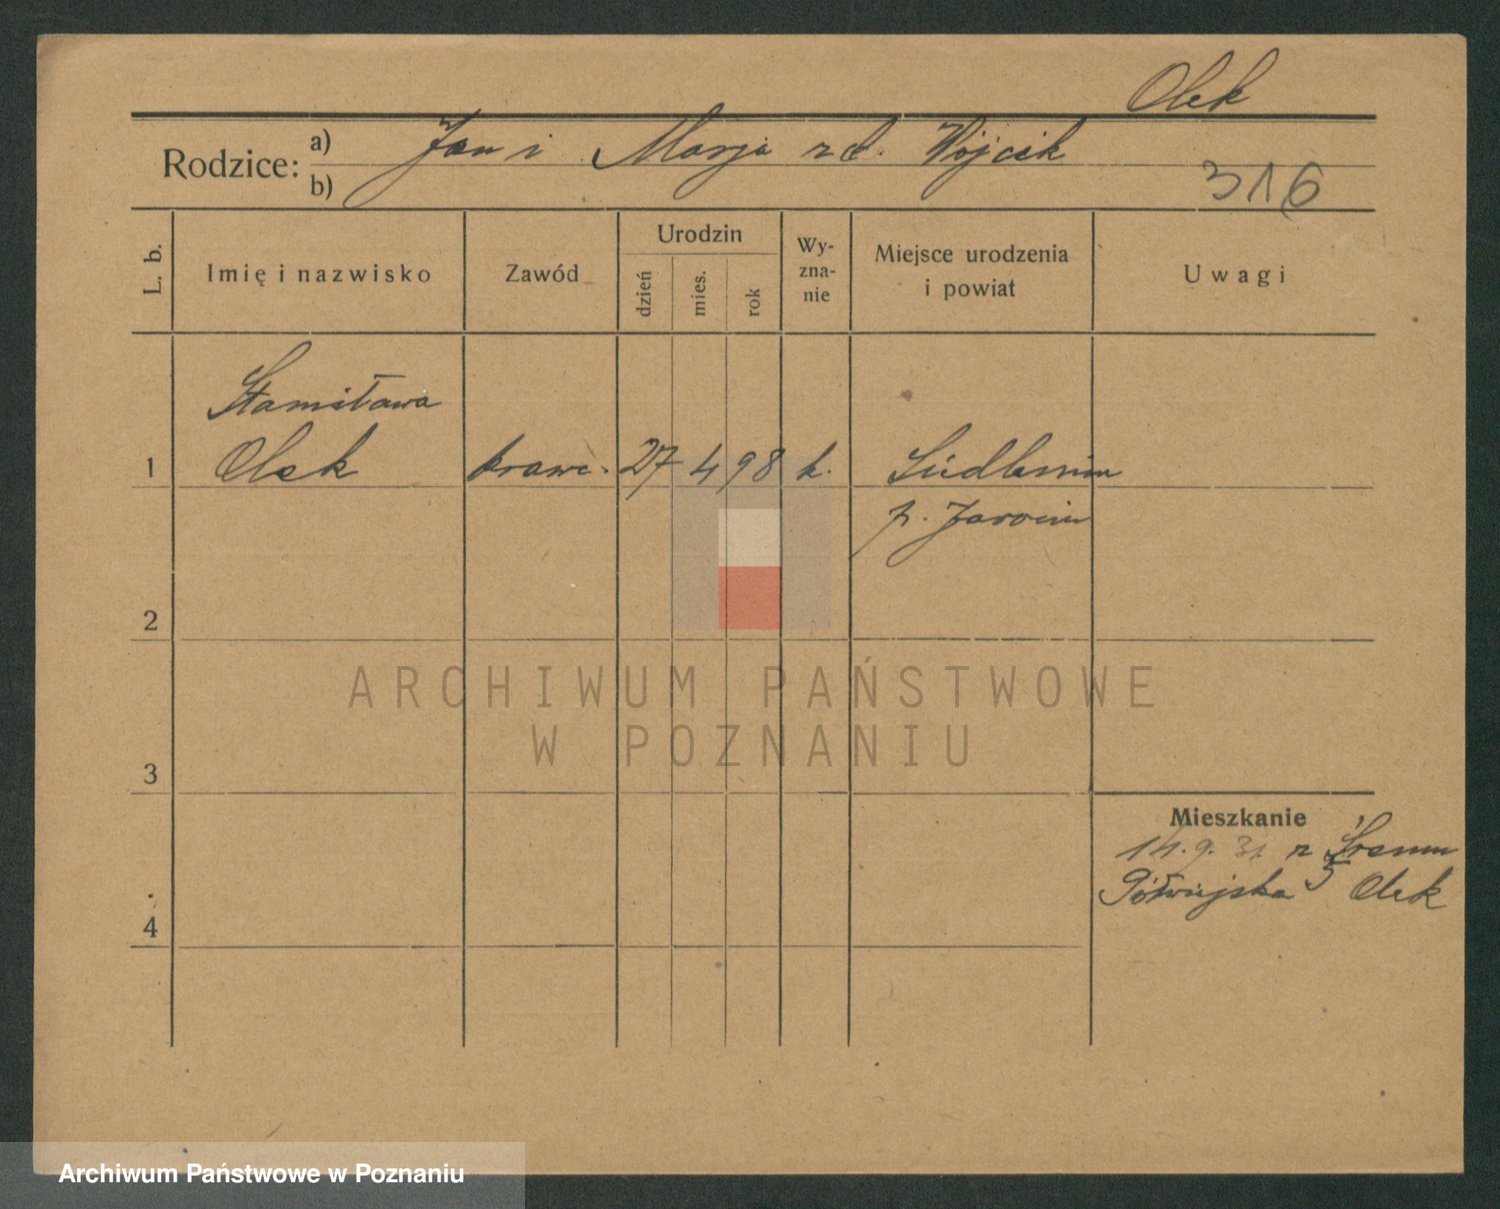 Olek
Rodzice: a) Jan i Marja zd. Wójcik
b)
316
L. b.
Imię i nazwisko
Zawód
Urodzin
dzień
mies.
rok
Wy-
zna-
nie
Miejsce urodzenia
i powiat
Uwagi
Stanisława
1 Olek krawc. 27 4 98 k.
p. Jarocin
2
ARCHIWUM PAŃSTWOWE
W POZNANIU
3
Mieszkanie
14. 9. 31. z Śremu
Półwiejska 5 Olek
4
Archiwum Państwowe w Poznaniu